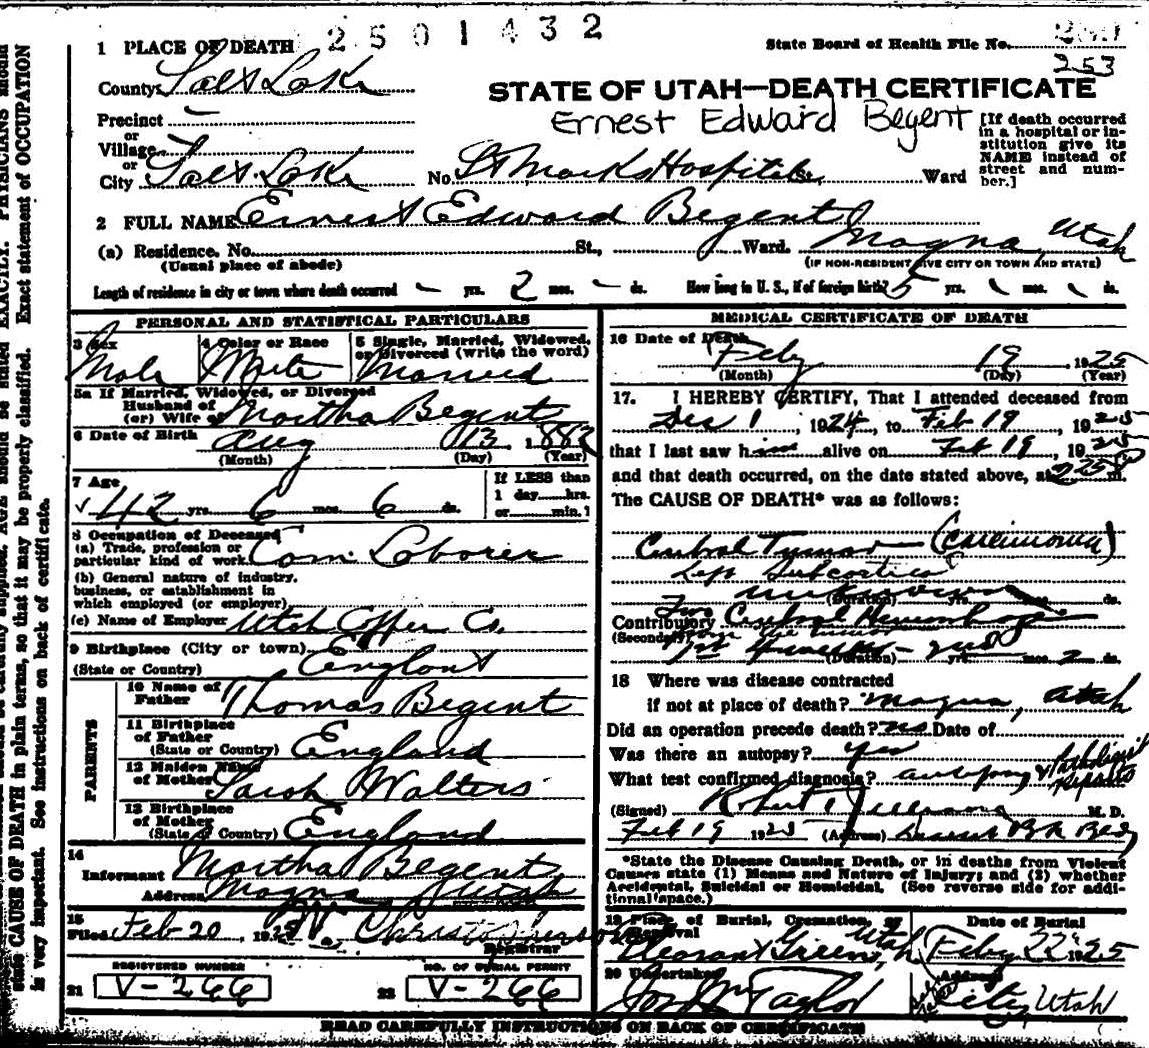 2501432
1 PLACE OF DEATH
State Board of Health File No.
253
County Salt Lake
STATE OF UTAH—DEATH CERTIFICATE
Ernest Edward Begent
[If death occurred in a hospital or institution give its NAME instead of street and number.]
Precinct –
or
Village
or
City Salt Lake No. St Marks Hospital St., Ward
2 FULL NAME Ernest Edward Begent
(a) Residence. No. St., Ward. Magna, Utah
(Usual place of abode) (IF NON-RESIDENT GIVE CITY OR TOWN AND STATE)
Length of residence in city or town where death occurred – yrs. 2 mos. – ds. How long in U. S., if of foreign birth? 5 yrs. mos. ds.
PERSONAL AND STATISTICAL PARTICULARS
3 Sex Male
4 Color or Race White
5 Single, Married, Widowed, or Divorced (write the word) Married
5a If Married, Widowed, or Divorced
Husband of
(or) Wife of Martha Begent
6 Date of Birth Aug 13 1882
(Month) (Day) (Year)
7 Age
42 yrs. 6 mos. 6 ds.
If LESS than
1 day hrs.
or min.?
8 Occupation of Deceased
(a) Trade, profession or
particular kind of work Com. Laborer
(b) General nature of industry,
business, or establishment in
which employed (or employer)
(c) Name of Employer Utah Copper Co.
9 Birthplace (City or town)
(State or Country) England
PARENTS
10 Name of
Father Thomas Begent
11 Birthplace
of Father
(State or Country) England
12 Maiden Name
of Mother Sarah Walters
13 Birthplace
of Mother
(State or Country) England
14
Informant Martha Begent
Address Magna Utah
15
Filed Feb 20, 1925
Registrar
REGISTERED NUMBER NO. OF BURIAL PERMIT
21 V-266 22 V-266
MEDICAL CERTIFICATE OF DEATH
16 Date of Death
Feby 19 1925
(Month) (Day) (Year)
17. I HEREBY CERTIFY, That I attended deceased from
Dec 1, 1924, to Feb 19, 1925
that I last saw him alive on Feb 19, 1925
and that death occurred, on the date stated above, at 225 P m.
The CAUSE OF DEATH* was as follows:
Cerebral Tumor (Carcinoma)
Left Subcortical
unknown (Duration) yrs. mos. ds.
Contributory Two Cerebral Hemorrhage
(Secondary)
(Duration) yrs. mos. 2 ds.
18 Where was disease contracted
if not at place of death? Magna, Utah
Did an operation precede death? no Date of
Was there an autopsy? yes
What test confirmed diagnosis? autopsy & Pathological Reports
(Signed) M. D.
Feb 19 1925 (Address)
*State the Disease Causing Death, or in deaths from Violent
Causes state (1) Means and Nature of Injury; and (2) whether
Accidental, Suicidal or Homicidal. (See reverse side for additional space.)
19 Place of Burial, Cremation, or Removal Date of Burial
Pleasant Green, Utah Feby 22 1925
20 Undertaker Address
Jos Wm Taylor City, Utah
READ CAREFULLY INSTRUCTIONS ON BACK OF CERTIFICATE
EXACTLY. PHYSICIANS should
state CAUSE OF DEATH in plain terms, so that it may be properly classified. Exact statement of OCCUPATION
is very important. See instructions on back of certificate.